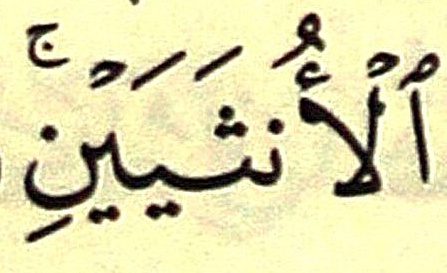 ٱلْأُنثَيَيْنِۚ